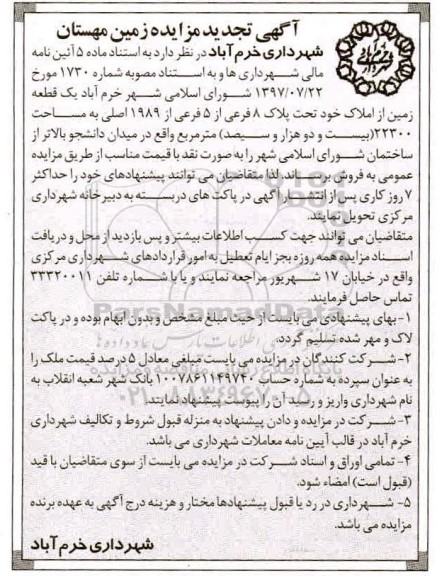 آگهی تجدید مزایده زمین مهستان
شهرداری خرم آباد در نظر دارد به استناد ماده ۵ آئین نامه
مالی شهرداری ها و به استناد مصوبه شماره ۱۷۳۰ مورخ
۱۳۹۷/۰۷/۲۲ شورای اسلامی شهر خرم آباد یک قطعه
زمین از املاک خود تحت پلاک ۸ فرعی از ۵ فرعی از ۱۹۸۹ اصلی به مساحت
۲۲۳۰۰(بیست و دو هزار و سیصد) مترمربع واقع در میدان دانشجو بالاتر از
ساختمان شورای اسلامی شهر را به صورت نقد با قیمت مناسب از طریق مزایده
عمومی به فروش برساند. لذا متقاضیان می توانند پیشنهادهای خود را حداکثر
۷ روز کاری پس از انتشار آگهی در پاکت های دربسته به دبیرخانه شهرداری
مرکزی تحویل نمایند.
متقاضیان می توانند جهت کسب اطلاعات بیشتر و پس بازدید از محل و دریافت
اسناد مزایده همه روزه بجز ایام تعطیل به امور قراردادهای شهرداری مرکزی
واقع در خیابان ۱۷ شهریور مراجعه نمایند و یا با شماره تلفن ۳۳۳۲۰۰۱۱
تماس حاصل فرمایند.
۱- بهای پیشنهادی می بایست از حیث مبلغ مشخص و بدون ابهام بوده و در پاکت
لاک و مهر شده تسلیم گردد.
۲- شرکت کنندگان در مزایده می بایست مبلغی معادل ۵ درصد قیمت ملک را
به عنوان سپرده به شماره حساب ۱۰۰۷۸۶۱۱۴۹۷۴۰ بانک شهر شعبه انقلاب به
نام شهرداری واریز و رسید آن را پیوست پیشنهاد نمایند.
۳- شرکت در مزایده و دادن پیشنهاد به منزله قبول شروط و تکالیف شهرداری
خرم آباد در قالب آیین نامه معاملات شهرداری می باشد.
۴- تمامی اوراق و اسناد شرکت در مزایده می بایست از سوی متقاضیان با قید
(قبول است) امضاء شود.
۵- شهرداری در رد یا قبول پیشنهادها مختار و هزینه درج آگهی به عهده برنده
مزایده می باشد.
شهرداری خرم آباد